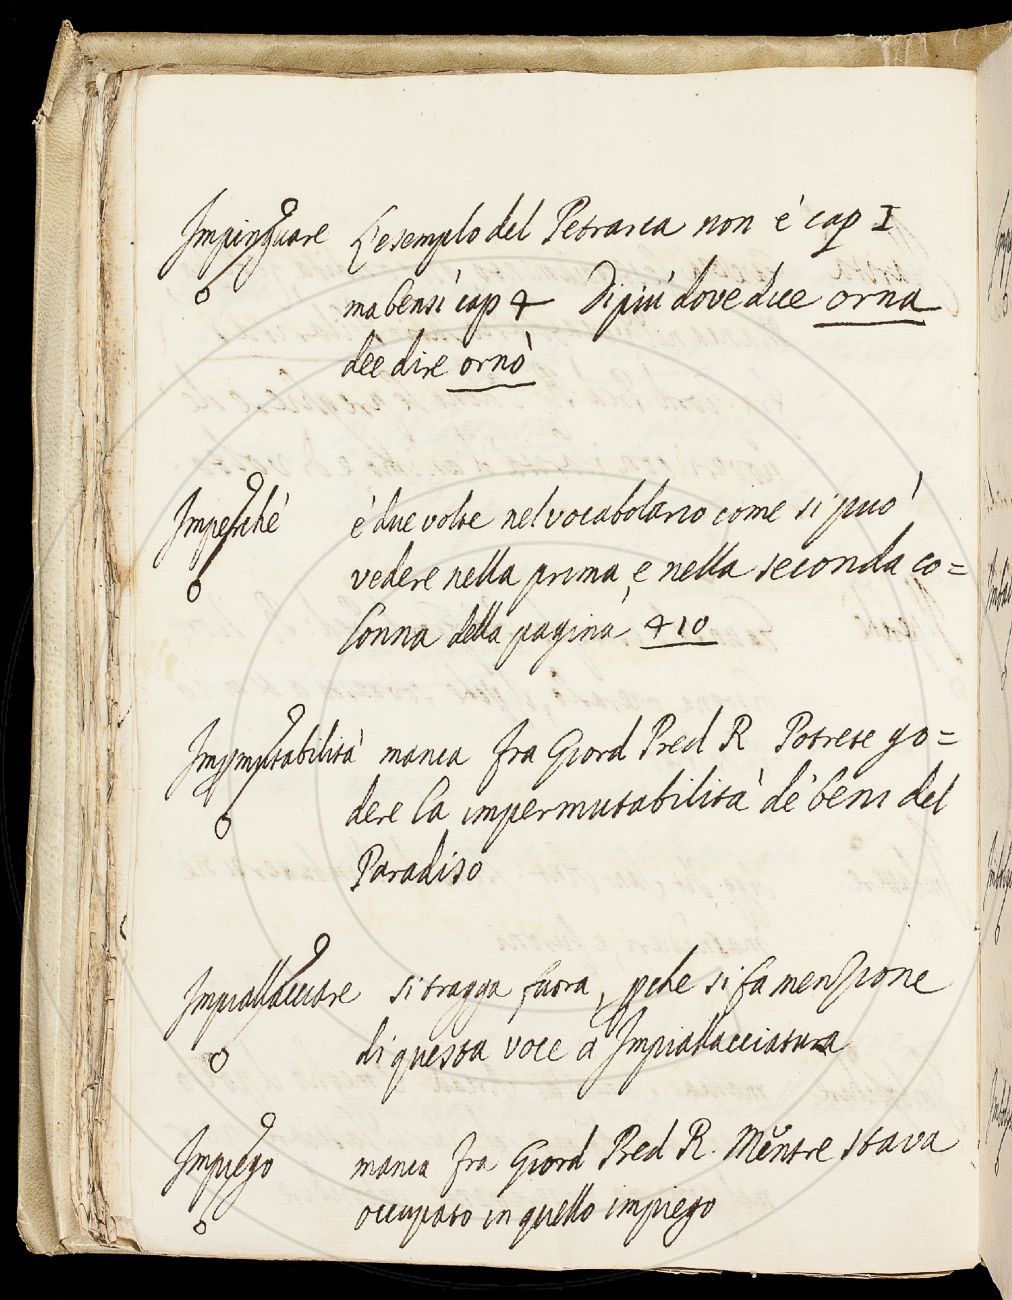 Impinguare L'esemplo del Petrarca non è cap I
ma bensì cap 4 Di più dove dice orna
dee dire ornò
Imperché è due volte nel vocabolario come si può
vedere nella prima, e nella seconda co=
lonna della pagina 410
manca fra Giord Pred R Potrete go=
dere la impermutabilità de beni del
Paradiso
Impiallacciare si tragga fuora, pche si fa menzione
di questa voce a Impiallacciatura
Impiego manca fra Giord Pred R. Mentre stava
occupato in quello impiego